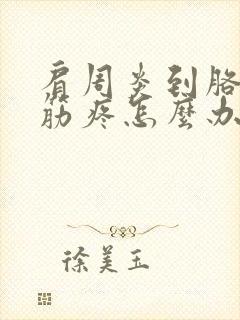 肩周炎到胳
筋疼怎麼办
徐美玉